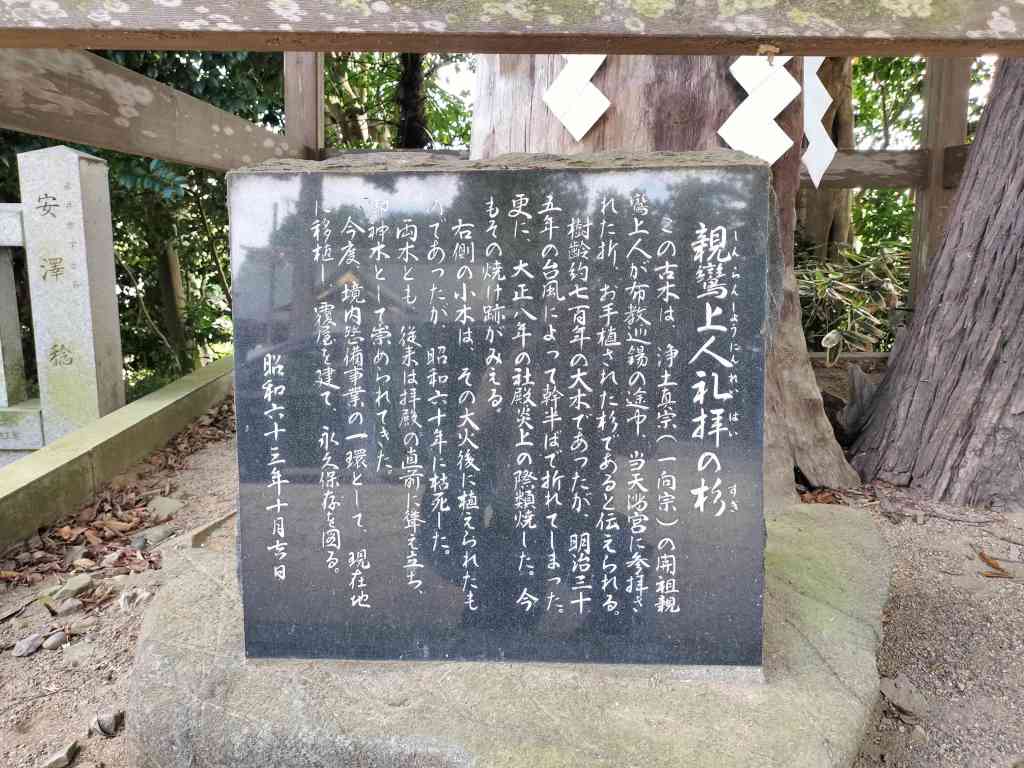 親鸞上人礼拝の杉
しんらんしょうにんれいはいすぎ
この古木は、浄土真宗(一向宗)の開祖親
鸞上人が布教巡錫の途中、当天満宮に参拝さ
れた折、お手植された杉であると伝えられる。
樹齢約七百年の大木であったが、明治三十
五年の台風によって幹半ばで折れてしまった。
更に、大正八年の社殿炎上の際類焼した。今
もその焼け跡がみえる。
右側の小木は、その大火後に植えられたも
のであったが、昭和六十年に枯死した。
両木とも、従来は拝殿の直前に聳え立ち、
御神木として崇められてきた。
今度、境内整備事業の一環として、現在地
に移植し、覆屋を建て、永久保存を図る。
昭和六十三年十月吉日
安澤稔